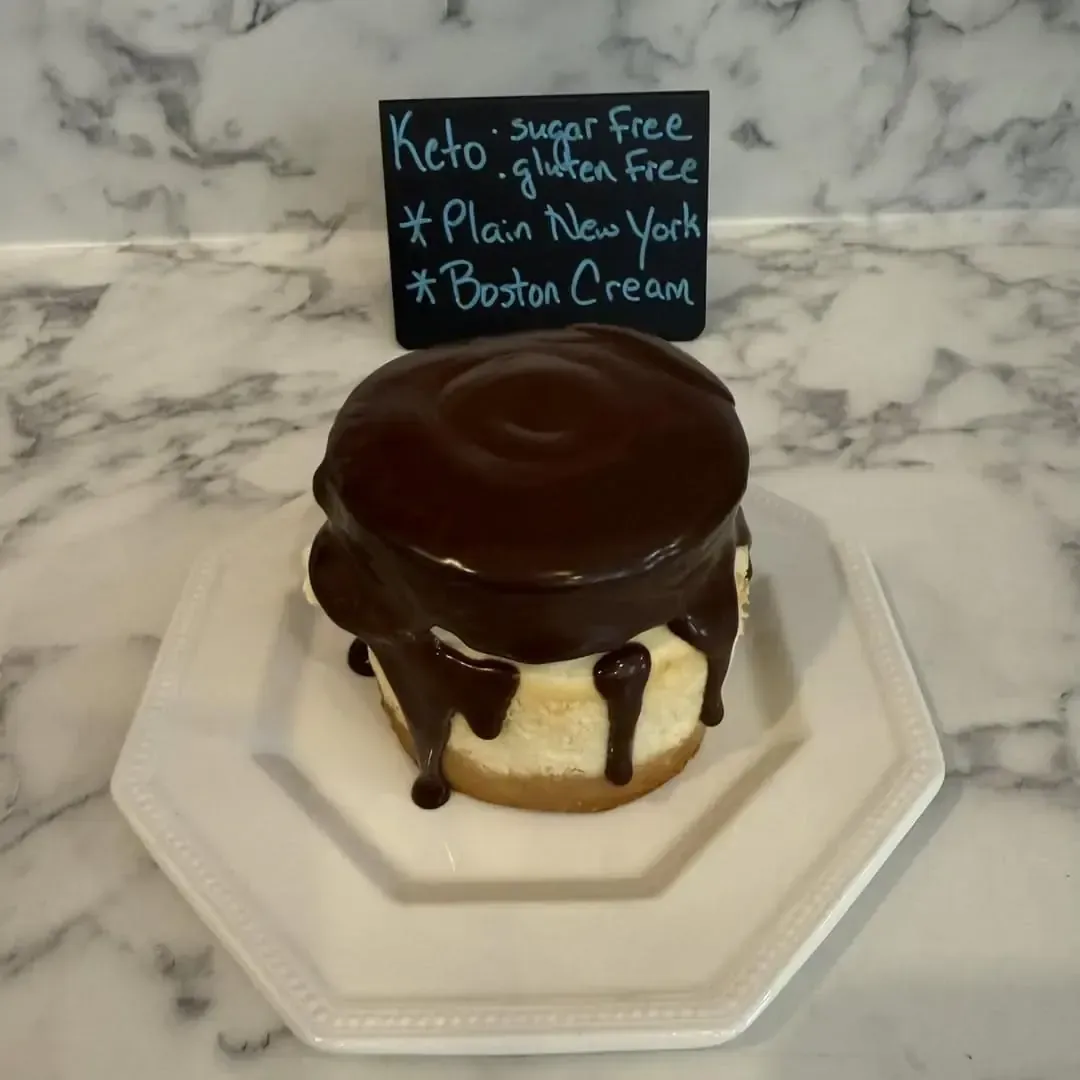 Keto · sugar free
· gluten free
* Plain New York
* Boston Cream